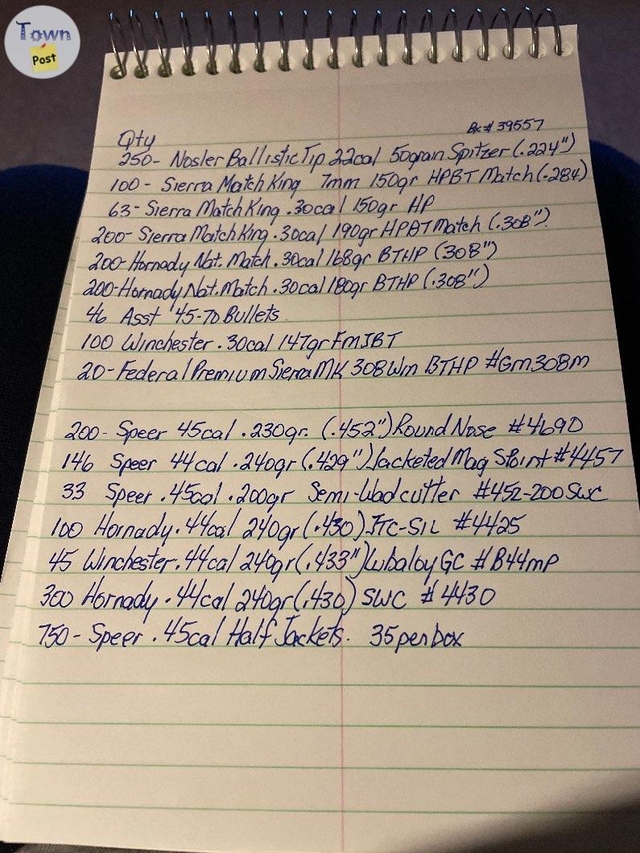 Town
Post
Bc# 39557
Qty
250- Nosler Ballistic Tip 22cal 50grain Spitzer (.224")
100- Sierra MatchKing 7mm 150gr HPBT Match (.284)
63- Sierra MatchKing .30cal 150gr HP
200- Sierra MatchKing .30cal 190gr HPBT Match (.308")
200- Hornady Nat. Match .30cal 168gr BTHP (308")
200- Hornady Nat. Match .30cal 180gr BTHP (.308")
46 Asst '45-70 Bullets
100 Winchester .30cal 147gr FMJBT
20- Federal Premium Sierra MK 308 Wm BTHP #Gm308m
200- Speer 45cal .230gr. (.452") Round Nose #4690
146 Speer 44cal .240gr (.429") Jacketed Mag #4457
33 Speer .45cal .200gr Semi-Wadcutter #452-200 SWC
100 Hornady .44cal 240gr (.430) JTC-SIL #4425
45 Winchester .44cal 240gr (.433") Lubaloy GC #B44mP
300 Hornady .44cal 240gr (.430) SWC #4430
750- Speer .45cal Half Jackets. 35 per box